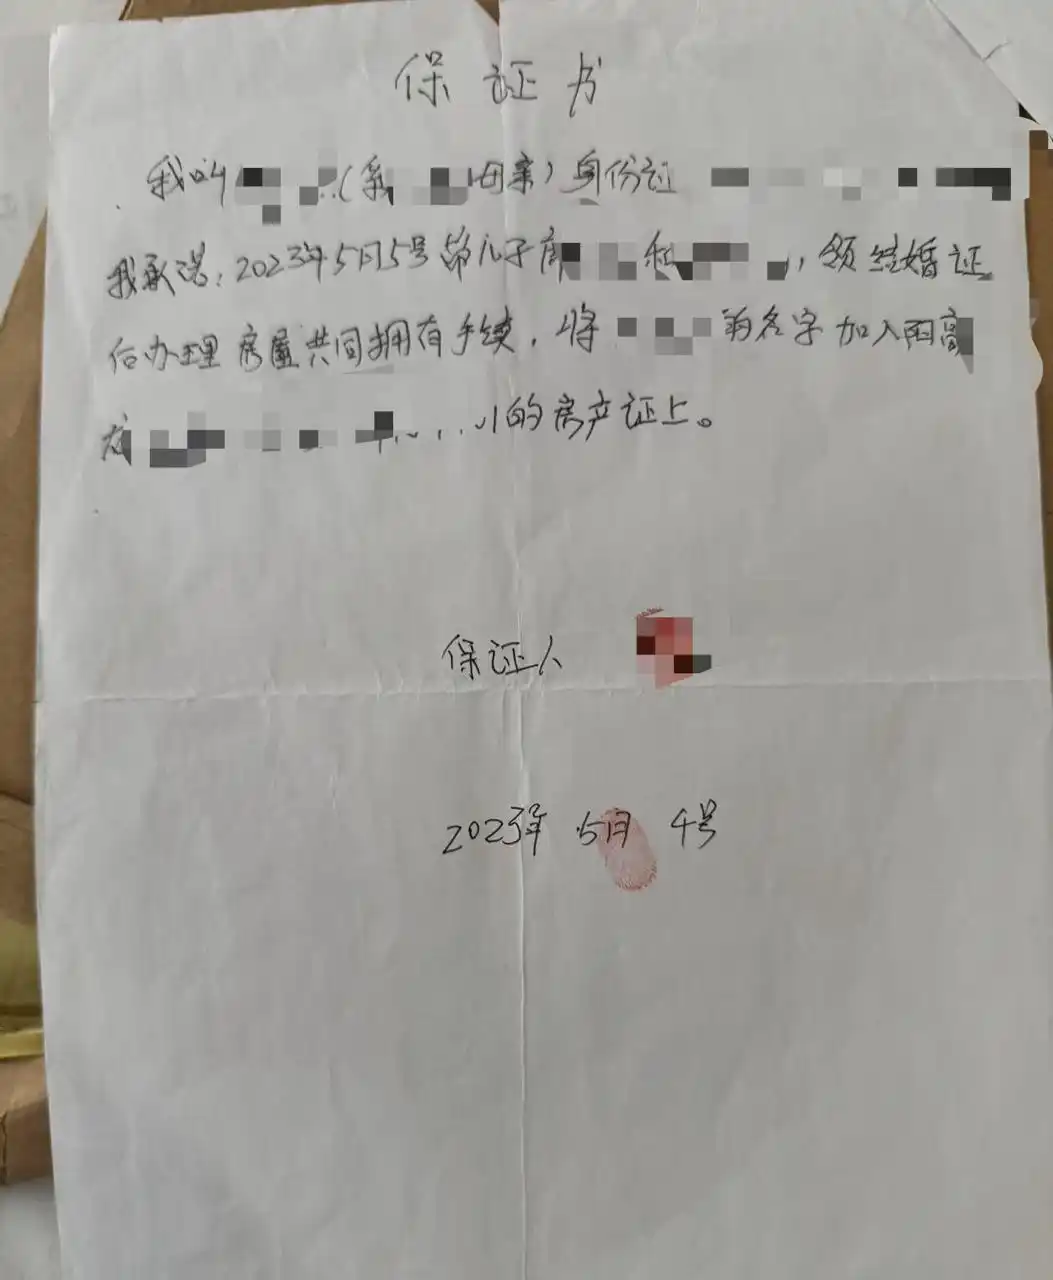 保证书
我叫（系母亲）身份证
我承诺：2023年5月5号第儿子和，领结婚证
后办理房屋共同拥有手续，将的名字加入阳高
的房产证上。
保证人
2023年 5月 4号